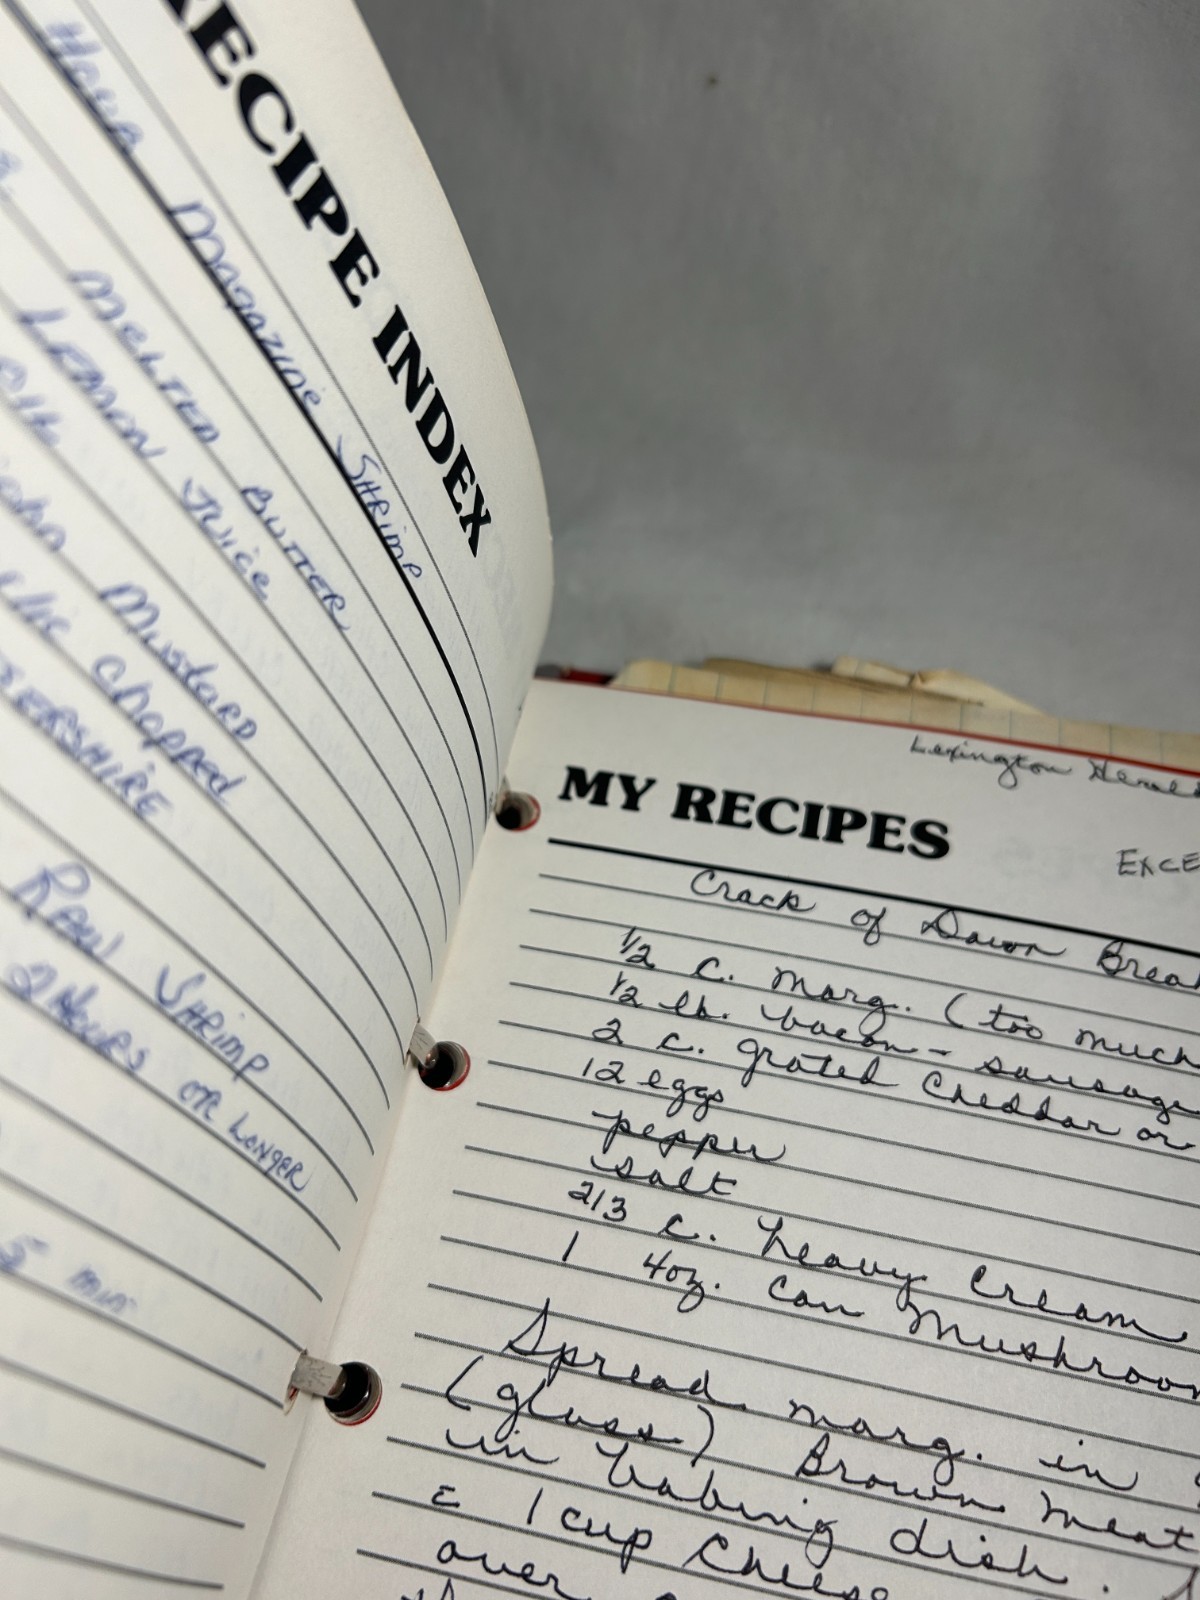 RECIPE INDEX
Magazine Shrimp
Melted Butter
Lemon Juice
Mustard
chopped
Raw Shrimp
2 Hours or Longer
5 min
Lexington
MY RECIPES
Crack of Dawn
1/2 c. marg. (too much
1/2 lb. bacon - sausage
2 c. grated cheddar or
12 eggs
pepper
salt
2/3 c. heavy cream
1 4oz. can
Spread marg. in
(glass) Brown meat
in baking dish.
1 cup cheese
over